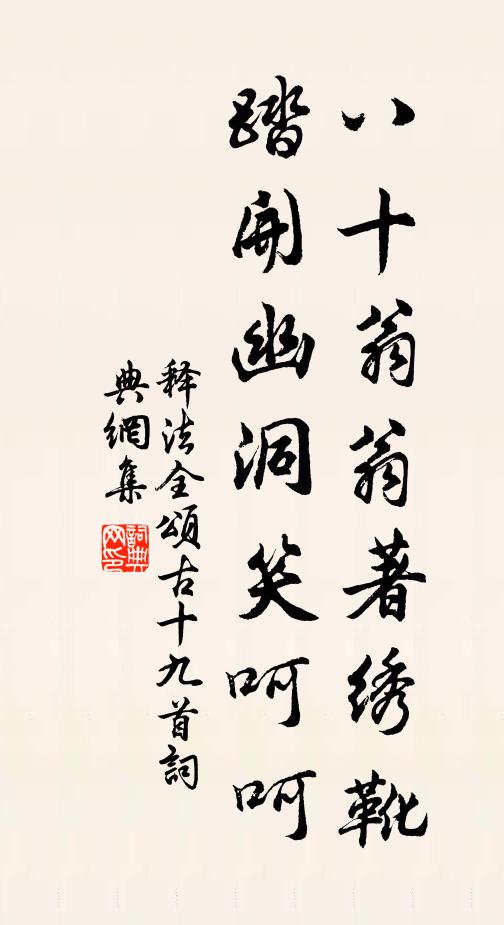 八十翁翁著绣靴
踏開幽洞笑呵呵
释法全頌古十九首詞
典網集
詞典網印